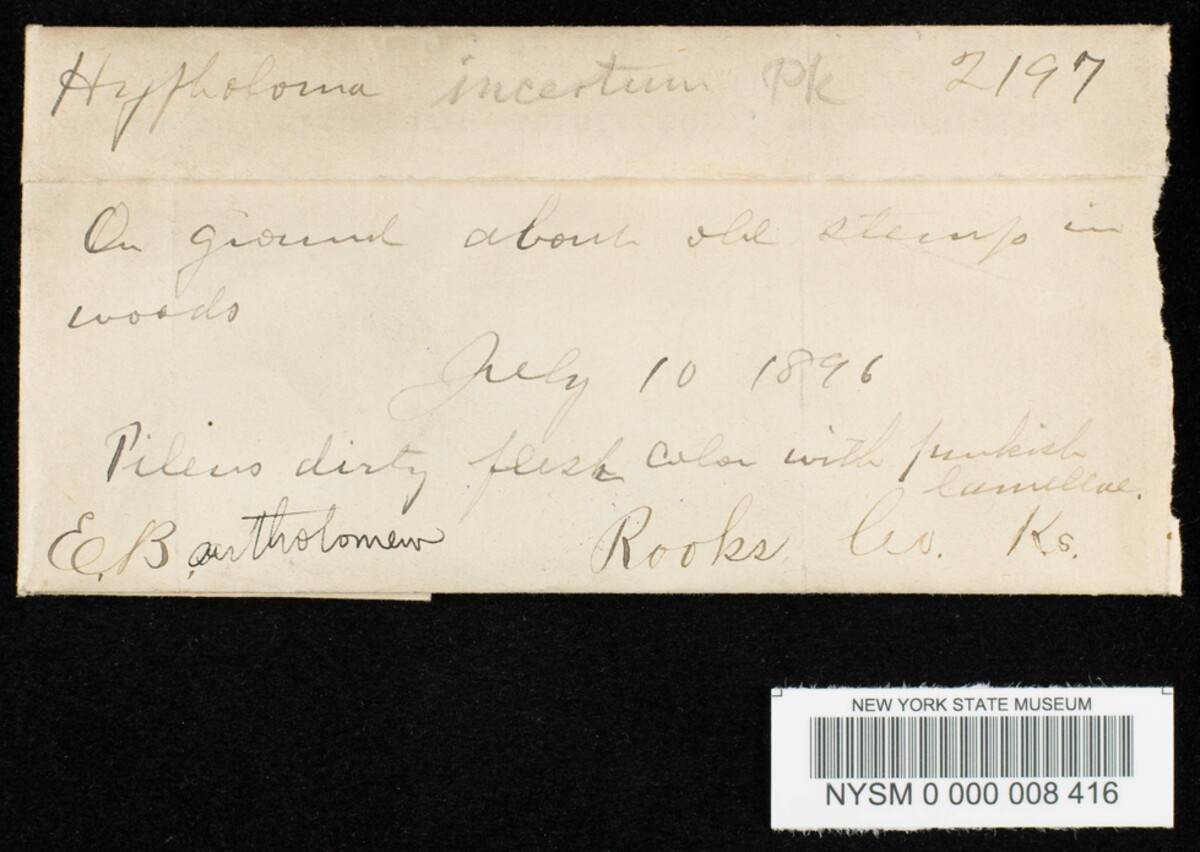 Hypholoma incertum Pk 2197
On ground about old stump in
woods
July 10 1896
Pileus dirty flesh color with pinkish
lamellae.
E. Bartholomew Rooks Co. Ks.
NEW YORK STATE MUSEUM
NYSM 0 000 008 416